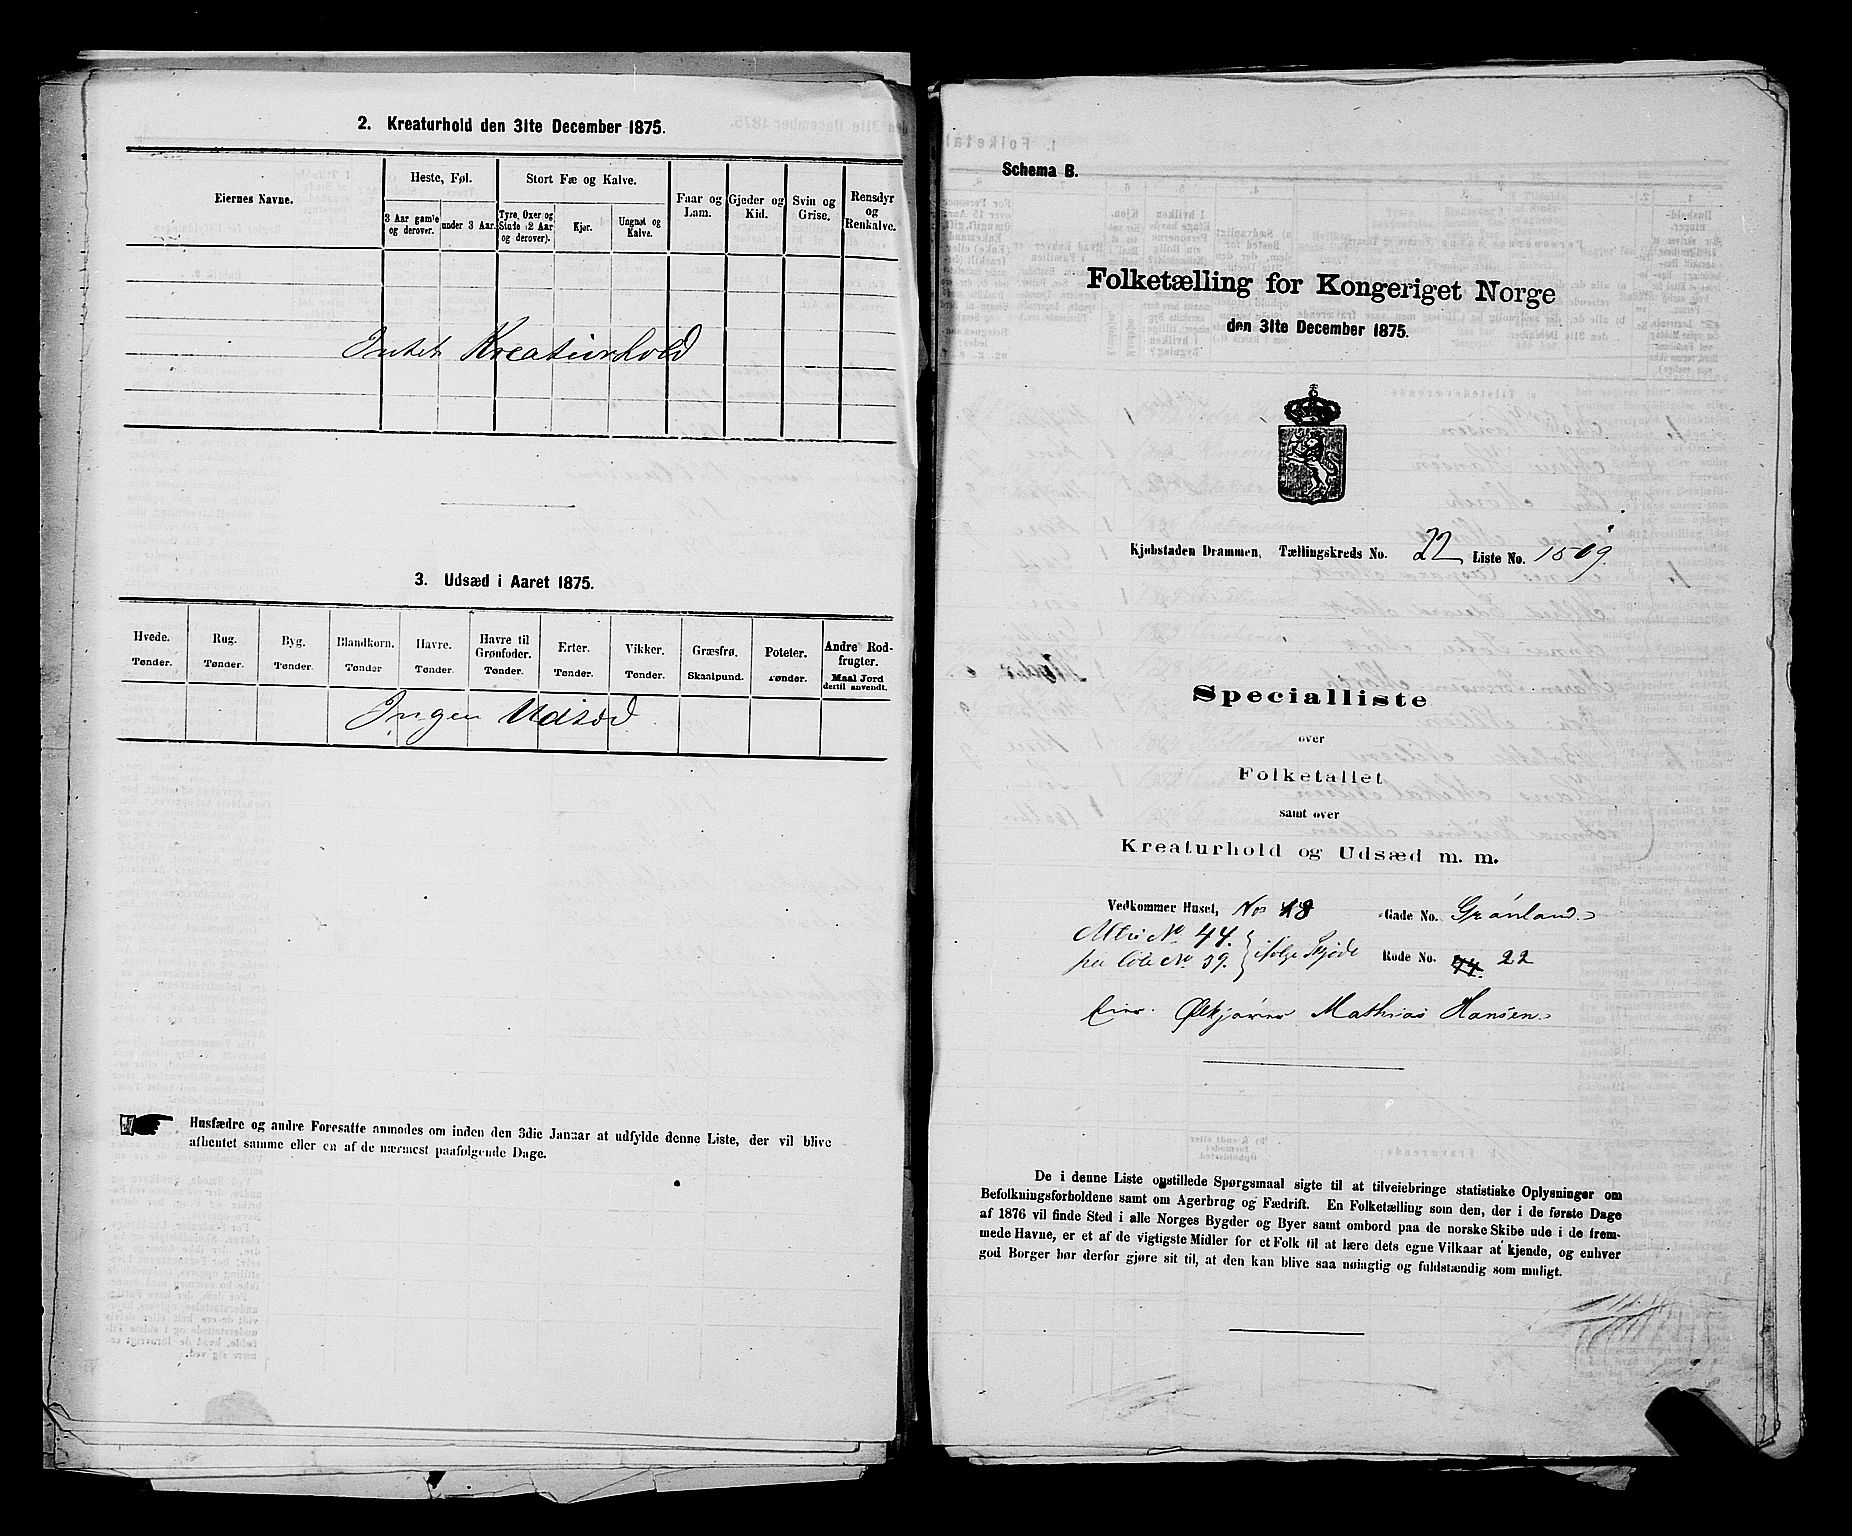 2. Kreaturhold den 31te December 1875.
Eiernes Navne.
Heste, Føl.
3 Aar gamle og derover.
under 3 Aar.
Stort Fæ og Kalve.
Tyre, Oxer og Stude (2 Aar og derover).
Kjør.
Ungnøt og Kalve.
Faar og Lam.
Gjeder og Kid.
Svin og Grise.
Rensdyr og Renkalve.
Intet Kreaturhold
3. Udsæd i Aaret 1875.
Hvede. Tønder.
Rug. Tønder.
Byg. Tønder.
Blandkorn. Tønder
Havre. Tønder.
Havre til Grønfoder. Tønder.
Erter. Tønder.
Vikker. Tønder.
Græsfrø. Skaalpund.
Poteter. Tønder.
Andre Rodfrugter. Maal Jord dertil anvendt.
Ingen Udsæd
Husfædre og andre Foresatte anmodes om inden den 3die Januar at udfylde denne Liste, der vil blive
afhentet samme eller en af de nærmest paafølgende Dage.
Schema B.
Folketælling for Kongeriget Norge
den 31te December 1875.
Kjøbstaden Drammen, Tællingskreds No. 22 Liste No. 1509.
Specialliste
over
Folketallet
samt over
Kreaturhold og Udsæd m. m.
Vedkommer Huset, No 18 Gade No. Grønland
Mtr No. 44.
No. 39. ifølge Skjøde Rode No. 44. 22
Eier. Ølkjører Mathias Hansen
De i denne Liste opstillede Spørgsmaal sigte til at tilveiebringe statistiske Oplysninger om
Befolkningsforholdene samt om Agerbrug og Fædrift. En Folketælling som den, der i de første Dage
af 1876 vil finde Sted i alle Norges Bygder og Byer samt ombord paa de norske Skibe ude i de frem-
mede Havne, er et af de vigtigste Midler for et Folk til at lære dets egne Vilkaar at kjende, og enhver
god Borger bør derfor gjøre sit til, at den kan blive saa nøiagtig og fuldstændig som muligt.